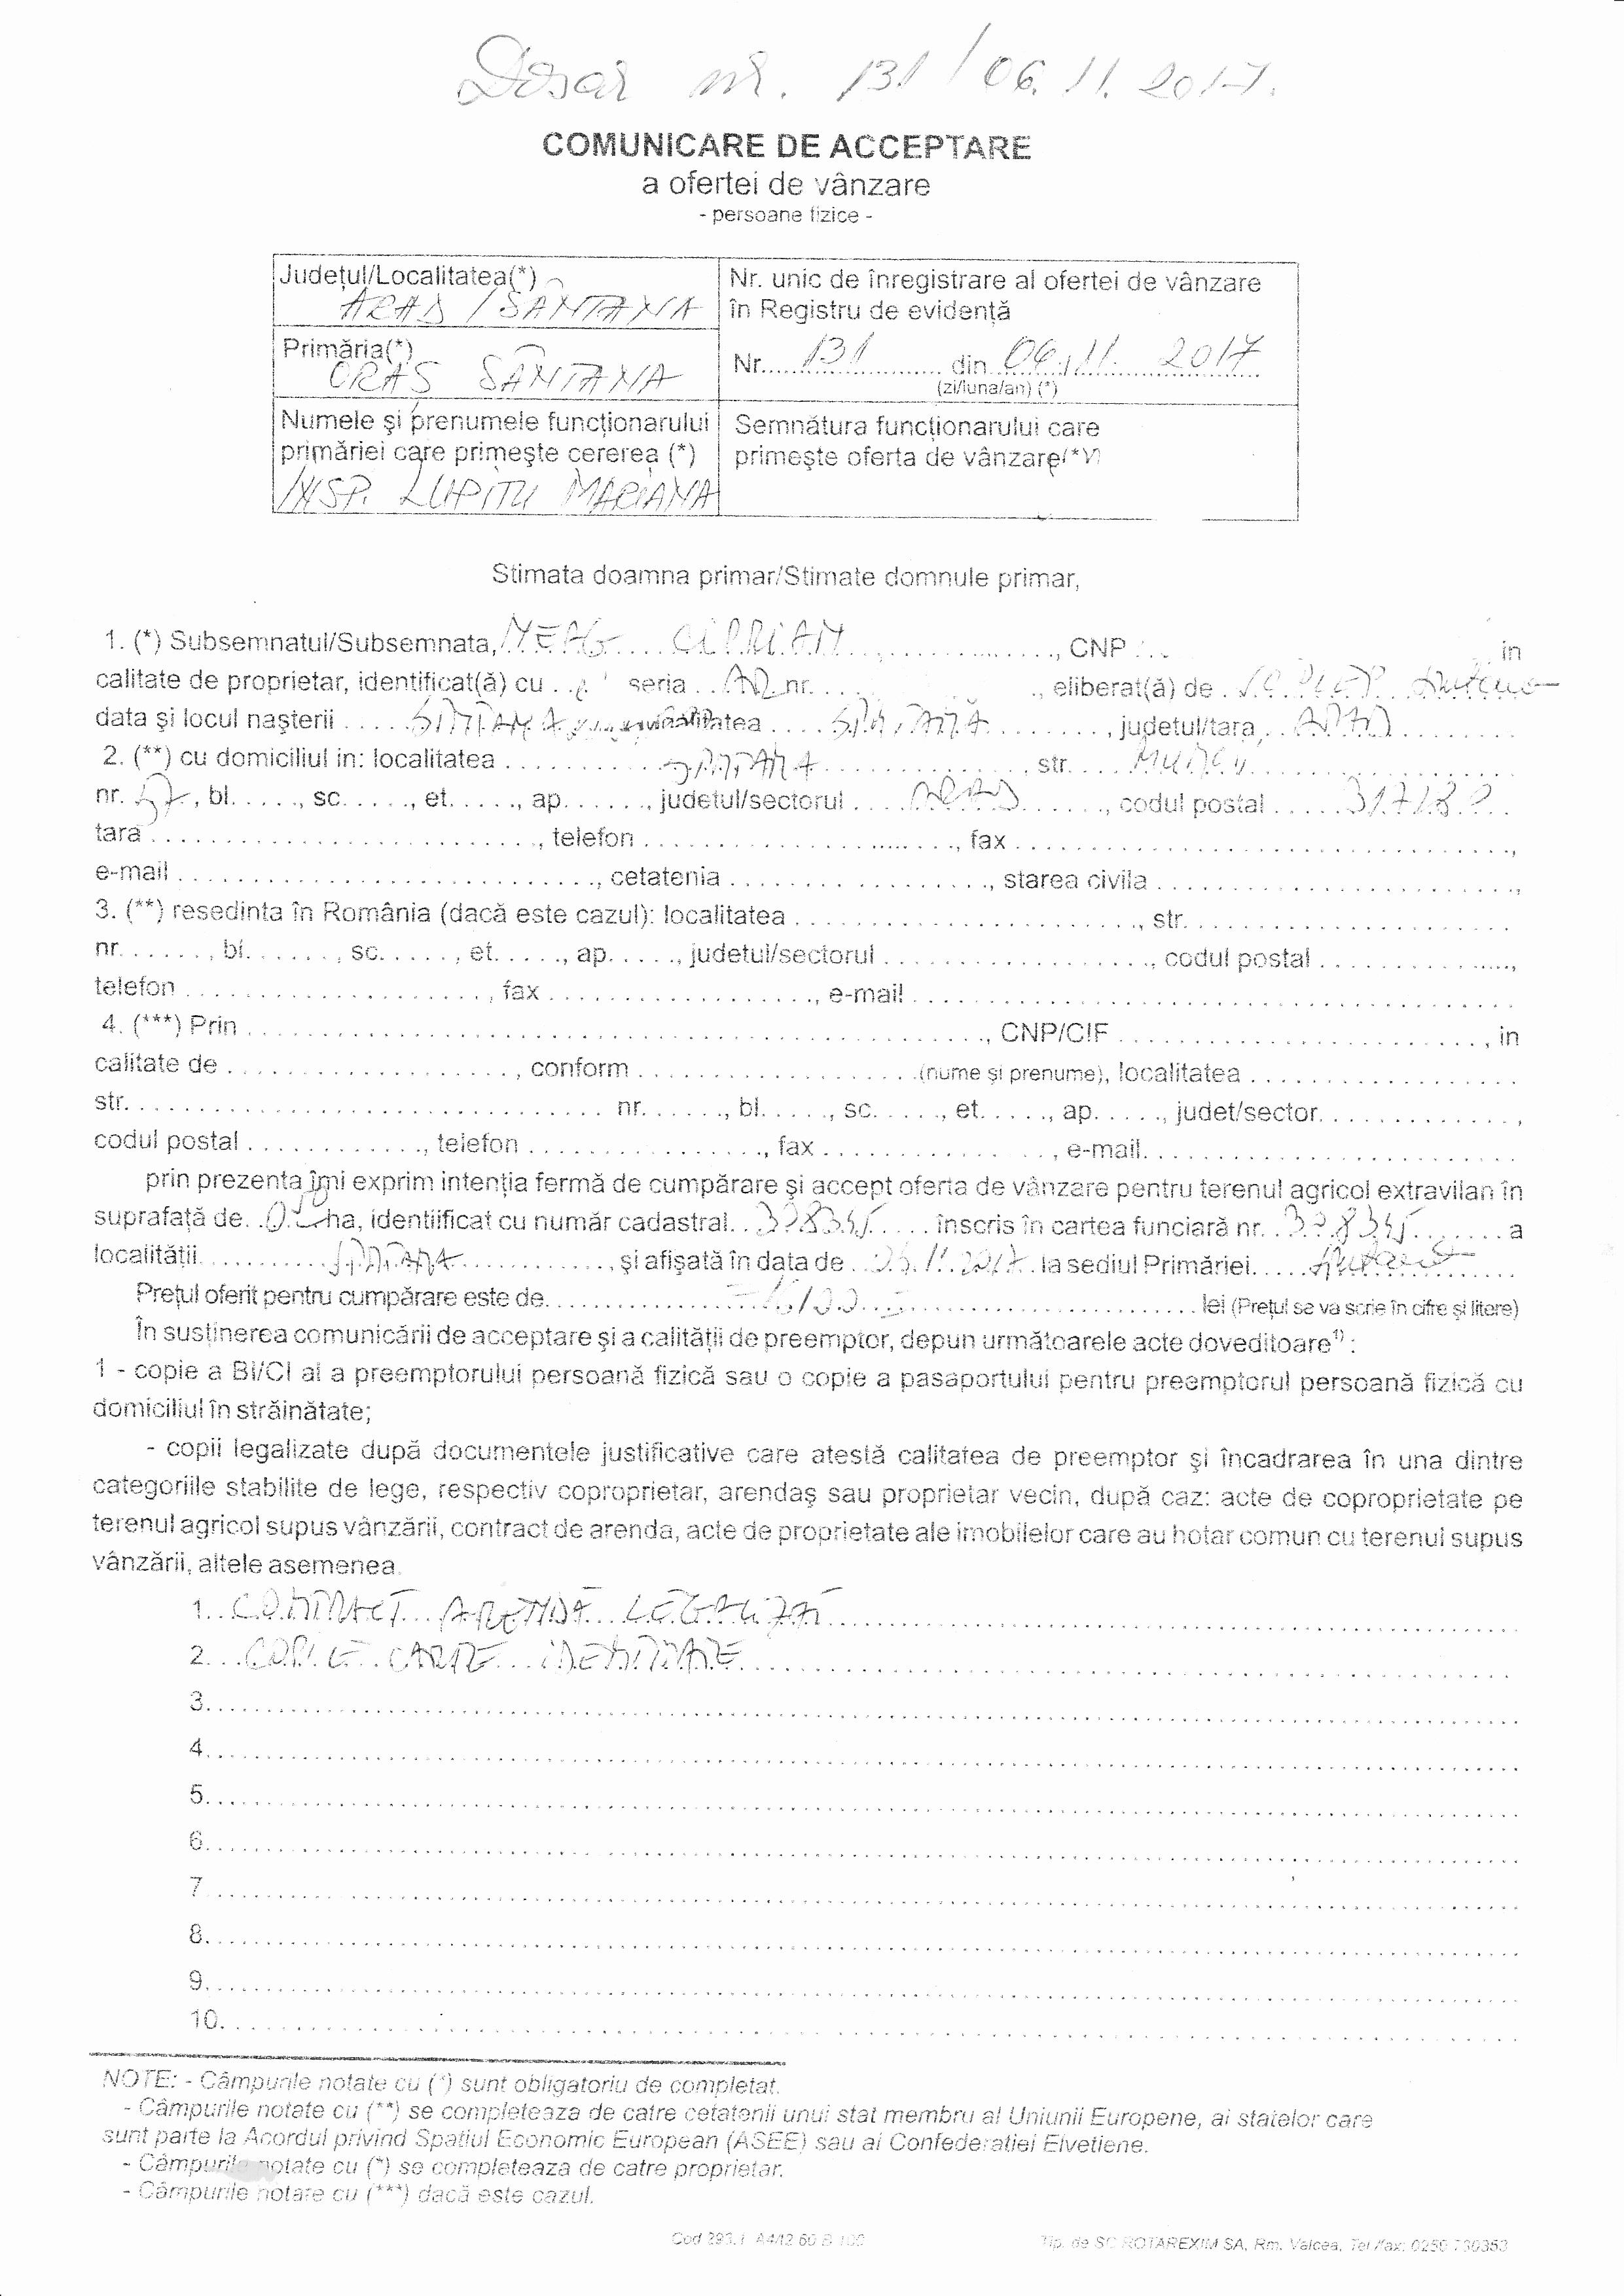 Dosar nr. 131/06.11.2017.
COMUNICARE DE ACCEPTARE
a ofertei de vânzare
- persoane fizice -
Județul/Localitatea(*)
ARAD / SÂNTANA
Nr. unic de înregistrare al ofertei de vânzare
în Registru de evidență
Primăria(*)
ORAȘ SÂNTANA
Nr. 131 din 06.11. 2017
(zi/luna/an) (*)
Numele și prenumele funcționarului
primăriei care primește cererea (*)
INSP. LUPIȚU MARIANA
Semnătura funcționarului care
primește oferta de vânzare(*)
Stimata doamna primar/Stimate domnule primar,
1. (*) Subsemnatul/Subsemnata, NEAG CIPRIAN, CNP in
calitate de proprietar, identificat(ă) cu seria AR nr. , eliberat(ă) de
data și locul nașterii localitatea SÂNTANĂ, judetul/tara ARAD
2. (**) cu domiciliul in: localitatea SÂNTANA, str.
nr. 57, bl. , sc. , et. , ap. , judetul/sectorul ARAD, codul postal
tara , telefon , fax ,
e-mail , cetatenia , starea civila ,
3. (**) resedinta în România (dacă este cazul): localitatea , str.
nr. , bl. , sc. , et. , ap. , judetul/sectorul , codul postal ,
telefon , fax , e-mail
4. (***) Prin , CNP/CIF , in
calitate de , conform (nume și prenume), localitatea
str. nr. , bl. , sc. , et. , ap. , judet/sector. ,
codul postal , telefon , fax , e-mail.
prin prezenta îmi exprim intenția fermă de cumpărare și accept oferta de vânzare pentru terenul agricol extravilan în
suprafață de ha, identiificat cu număr cadastral înscris în cartea funciară nr. a
localității SÂNTANA, și afișată în data de la sediul Primăriei
Prețul oferit pentru cumpărare este de lei (Prețul se va scrie în cifre și litere)
În susținerea comunicării de acceptare și a calității de preemptor, depun următoarele acte doveditoare¹⁾ :
1 - copie a BI/CI al a preemptorului persoană fizică sau o copie a pasaportului pentru preemptorul persoană fizică cu
domiciliul în străinătate;
- copii legalizate după documentele justificative care atestă calitatea de preemptor și încadrarea în una dintre
categoriile stabilite de lege, respectiv coproprietar, arendaș sau proprietar vecin, după caz: acte de coproprietate pe
terenul agricol supus vânzării, contract de arenda, acte de proprietate ale imobilelor care au hotar comun cu terenul supus
vânzării, altele asemenea.
1. CONTRACT ARENDĂ LEGALIZAT
2. COPIE CARTE IDENTITATE
3.
4.
5.
6.
7
8.
9.
10.
NOTE: - Câmpurile notate cu (*) sunt obligatoriu de completat.
- Câmpurile notate cu (**) se completeaza de catre cetatenii unui stat membru al Uniunii Europene, ai statelor care
sunt parte la Acordul privind Spatiul Economic European (ASEE) sau ai Confederatiei Elvetiene.
- Câmpurile notate cu (*) se completeaza de catre proprietar.
- Câmpurile notate cu (***) dacă este cazul.
Tip. de SC ROTAREXIM SA, Rm. Valcea, Tel./fax: